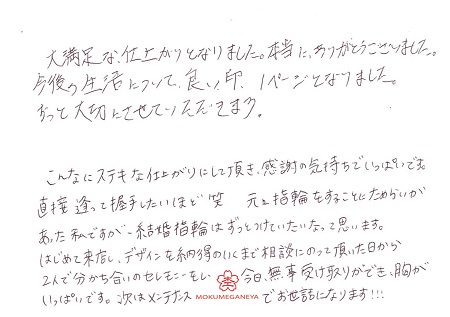 大満足な、仕上がりとなりました。本当に、ありがとうございました。
今後の生活について、良い印、1ページとなりました。
ずっと大切にさせていただきます。
こんなにステキな仕上がりにして頂き、感謝の気持ちでいっぱいです。
直接逢って握手したいほど笑 元々指輪をすることにためらいが
あった私ですが、結婚指輪はずっとつけていたいなって思います。
はじめて来店し、デザインを納得のいくまで相談にのって頂いた日から
2人で分かち合いのセレモニーをし 今日、無事受け取りができ、胸が
いっぱいです。次はメンテナンス MOKUMEGANEYA でお世話になります!!!